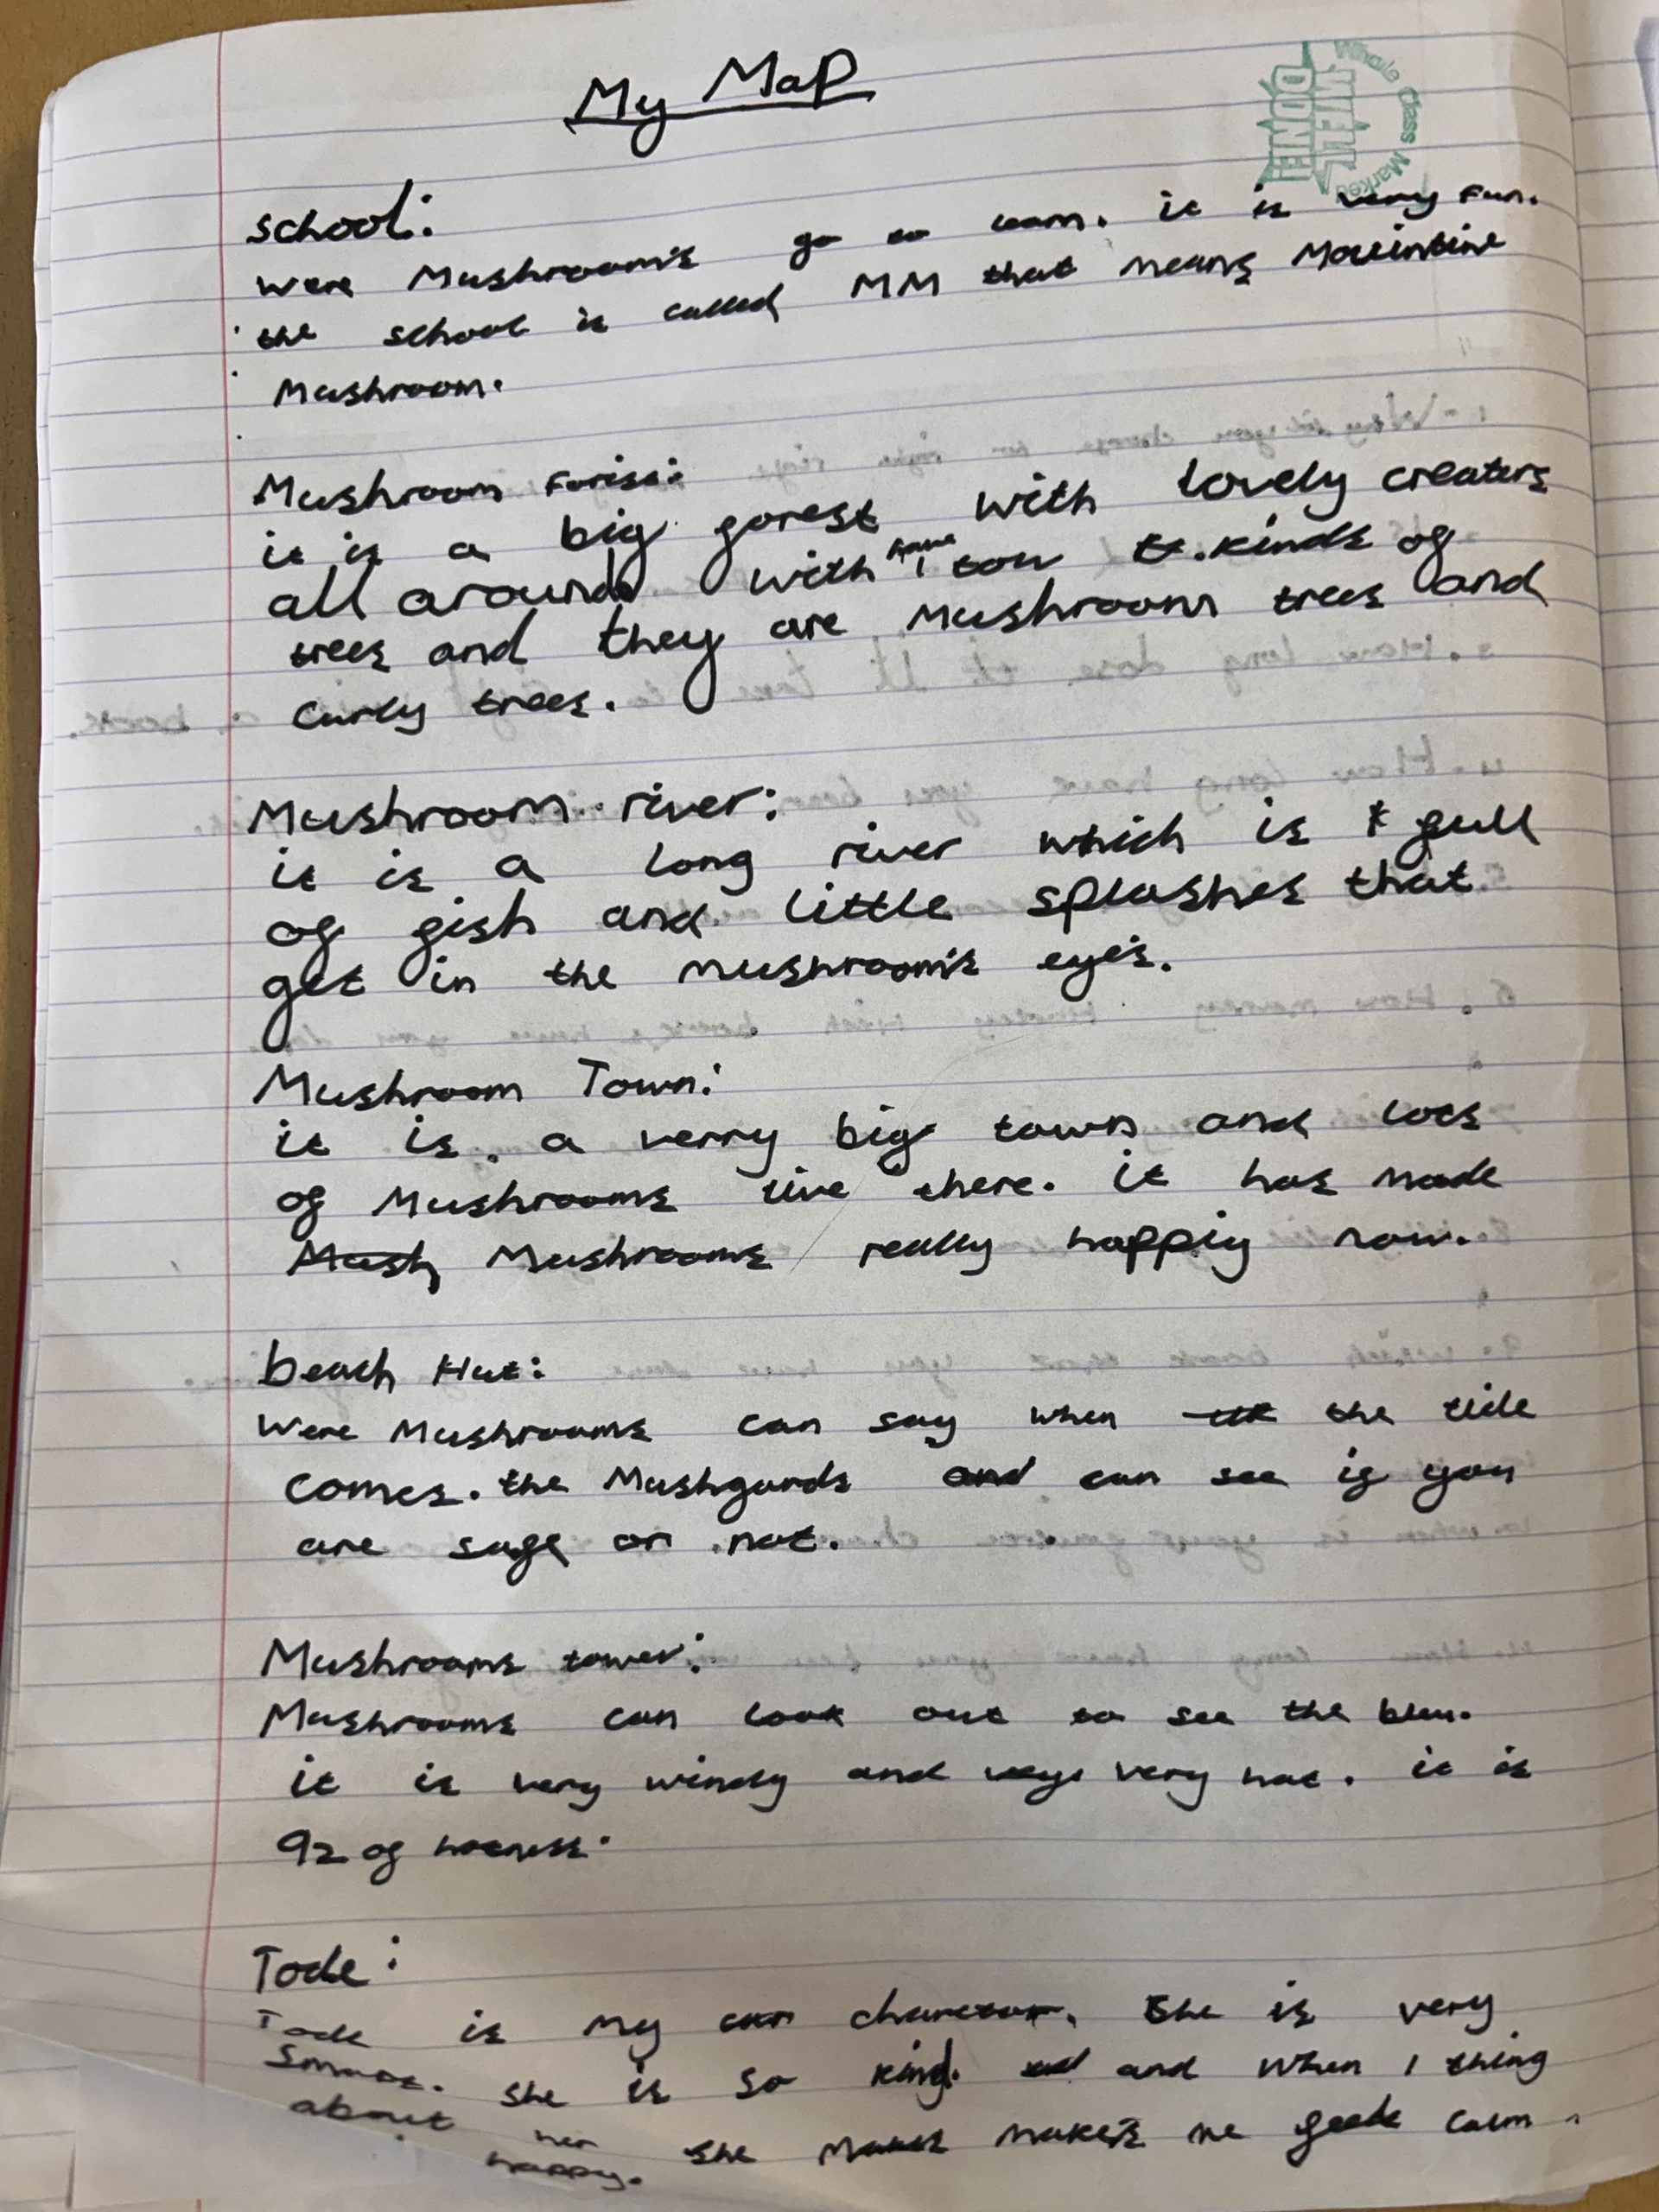 My Map
Whole Class Marked
WELL DONE!
school:
were Mushroom's go to learn. it is very fun.
the school is called MM that means
Mushroom.
Mushroom Forist:
it is a big forest with lovely creaters
all around with have tow kinds of
trees and they are Mushroom trees and
curly trees.
Mushroom river:
it is a long river which is full
of fish and little splashes that
get in the mushroom's eye's.
Mushroom Town:
it is a verry big town and lots
of Mushrooms live there. it has made
Mush Mushrooms really happiy now.
beach Hut:
Were Mushrooms can say when the tide
comes. the Mushgards and can see if you
are safe or not.
Mushrooms tower:
Mushrooms can look out to see the
it is very windy and very hot. it is
92 of hotness.
Tode:
Tode is my charector. She is very
smart. she is so kind. and when I thing
about her she makes makes me feele calm.
happy.